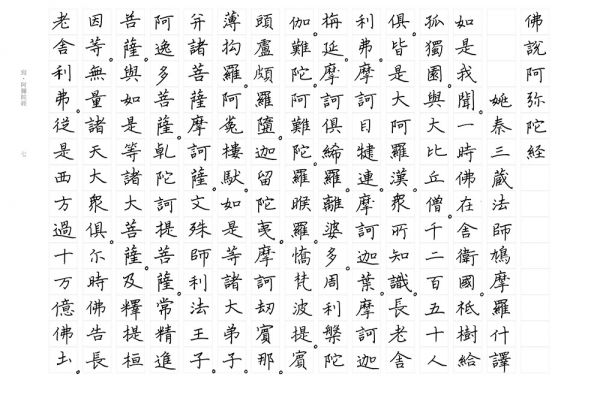 佛說阿弥陀經
姚秦三藏法師鳩摩羅什譯
如是我聞。一時佛在舍衛國。祇樹給
孤獨園。與大比丘僧。千二百五十人
俱。皆是大阿羅漢。眾所知識。長老舍
利弗。摩訶目犍連。摩訶迦葉。摩訶迦
梅延。摩訶俱絺羅。離婆多。周利槃陀
伽。難陀。阿難陀。羅睺羅。憍梵波提。賓
頭盧頗羅墮。迦留陀夷。摩訶劫賓那。
薄拘羅。阿㝹樓馱。如是等諸大弟子。
并諸菩薩摩訶薩。文殊師利法王子。
阿逸多菩薩。乹陀訶提菩薩。常精進
菩薩。與如是等諸大菩薩。及釋提桓
因等。無量諸天大眾俱。尒時佛告長
老舍利弗。從是西方過十万億佛土。
寫·阿彌陀經 七